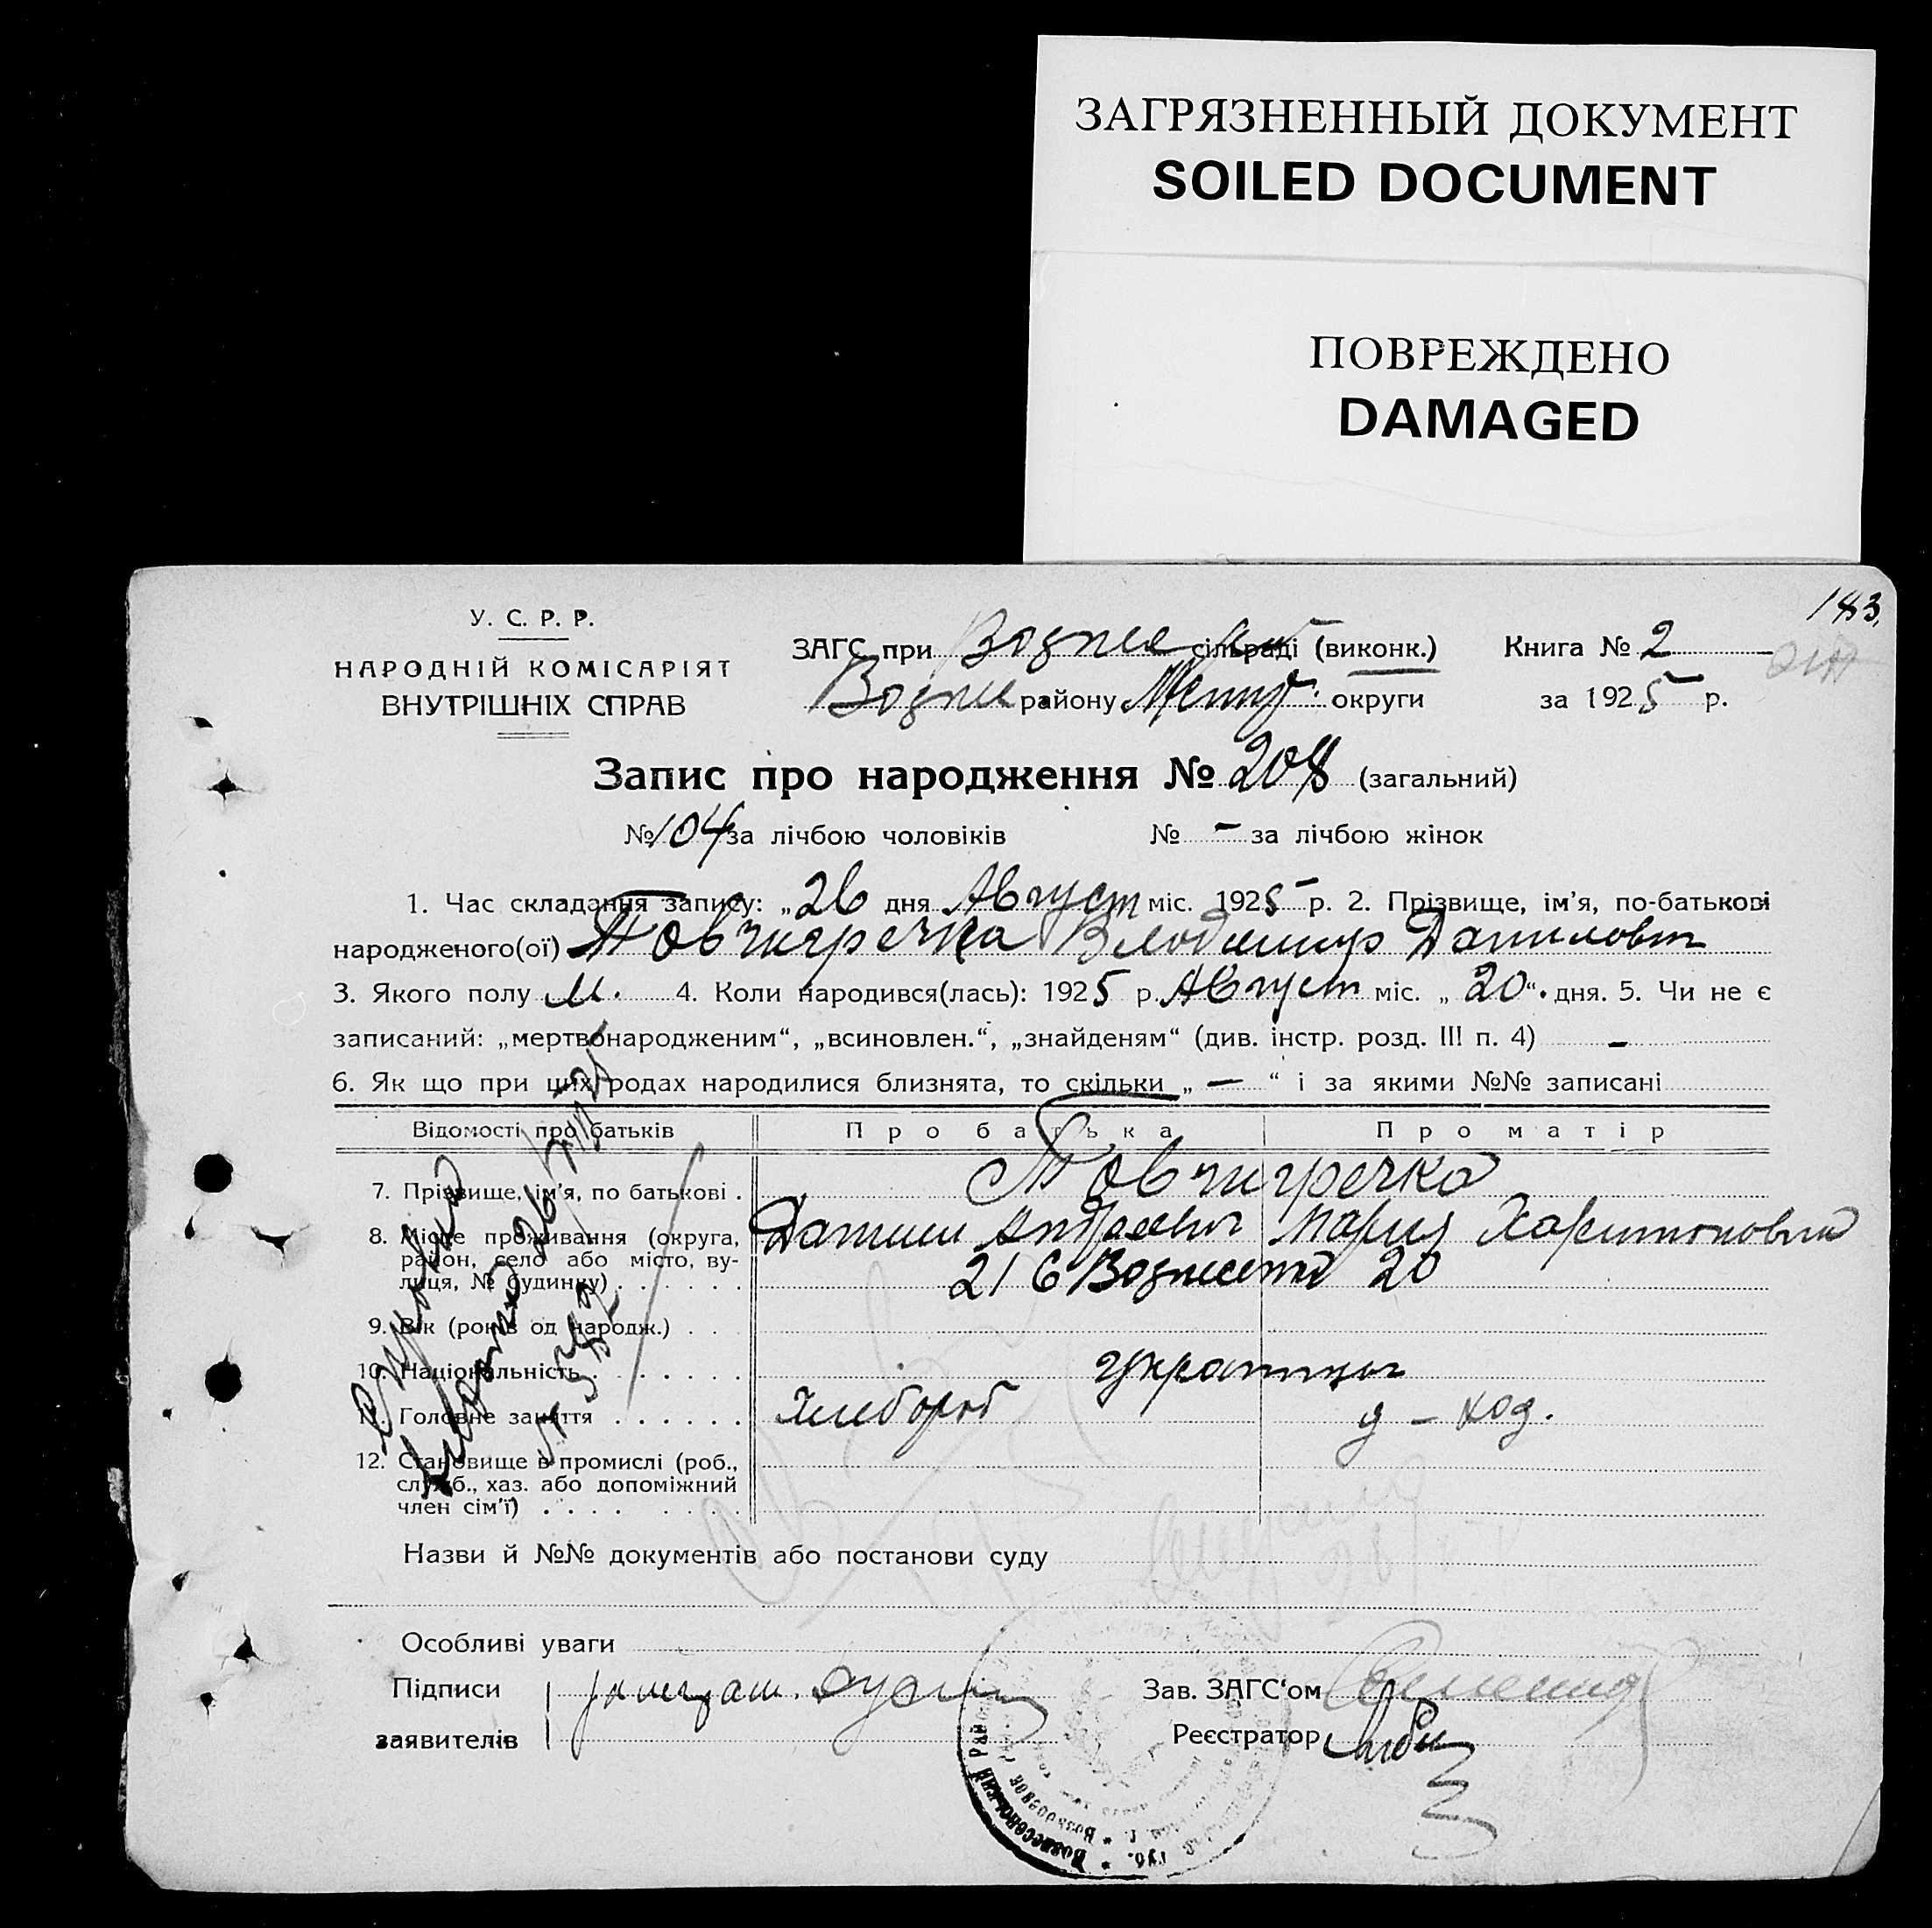 ЗАГРЯЗНЕННЫЙ ДОКУМЕНТ
SOILED DOCUMENT
ПОВРЕЖДЕНО
DAMAGED
183.
У. С. Р. Р.
НАРОДНІЙ КОМІСАРІЯТ
ВНУТРІШНІХ СПРАВ
ЗАГС при сільраді (виконк.) Книга № 2
району округи за 1925 р.
Запис про народження № 208 (загальний)
№ 104 за лічбою чоловіків № – за лічбою жінок
1. Час складання запису: „26 дня Август міс. 1925 р. 2. Прізвище, ім'я, по-батькові
народженого(ої) Товчигречка Владимир Данилович
3. Якого полу м. 4. Коли народився(лась): 1925 р. Август міс. „20“ дня. 5. Чи не є
записаний: „мертвонародженим“, „всиновлен.“, „знайденям“ (див. інстр. розд. III п. 4) –
6. Як що при цих родах народилися близнята, то скільки „ — “ і за якими №№ записані
Відомості про батьків Про батька Про матір
7. Прізвище, ім'я, по батькові . Товчигречка
8. Місце проживання (округа, Данило Андреевич Мария Харитоновна
район, село або місто, ву-
лиця, № будинку) . . . . . . 216 20
9. Вік (років од народж.) . . .
10. Національність . . . . . . . украинцы
11. Головне заняття . . . . . . Хлебороб д – хоз.
12. Становище в промислі (роб.,
служб., хаз. або допоміжний
член сім'ї) . . . . . . . .
Назви й №№ документів або постанови суду
Особливі уваги
Підписи Зав. ЗАГС'ом
заявителів Реєстратор